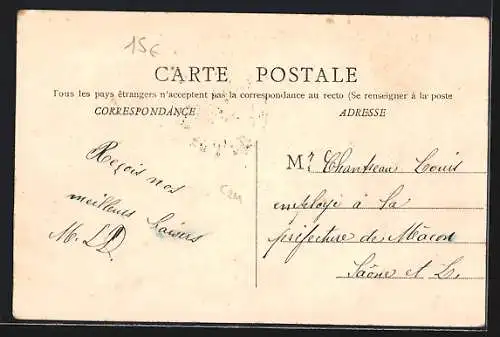 15€
CARTE POSTALE
Tous les pays étrangers n'acceptent pas la correspondance au recto (Se renseigner à la poste
CORRESPONDANCE
ADRESSE
Reçois nos
meilleurs baisers
M. LD.
Mr Chantreau Louis
employé à la
préfecture de Mâcon
Saône et L.